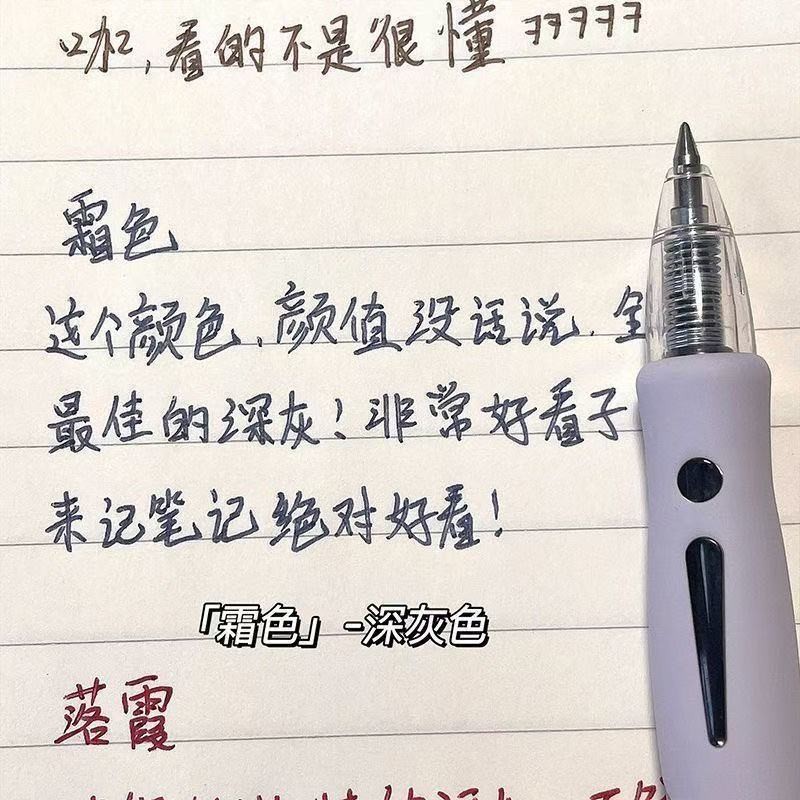 咖，看的不是很懂 77777
霜色
这个颜色，颜值没话说．
最佳的深灰！非常好看子
来记笔记绝对好看！
「霜色」-深灰色
落霞